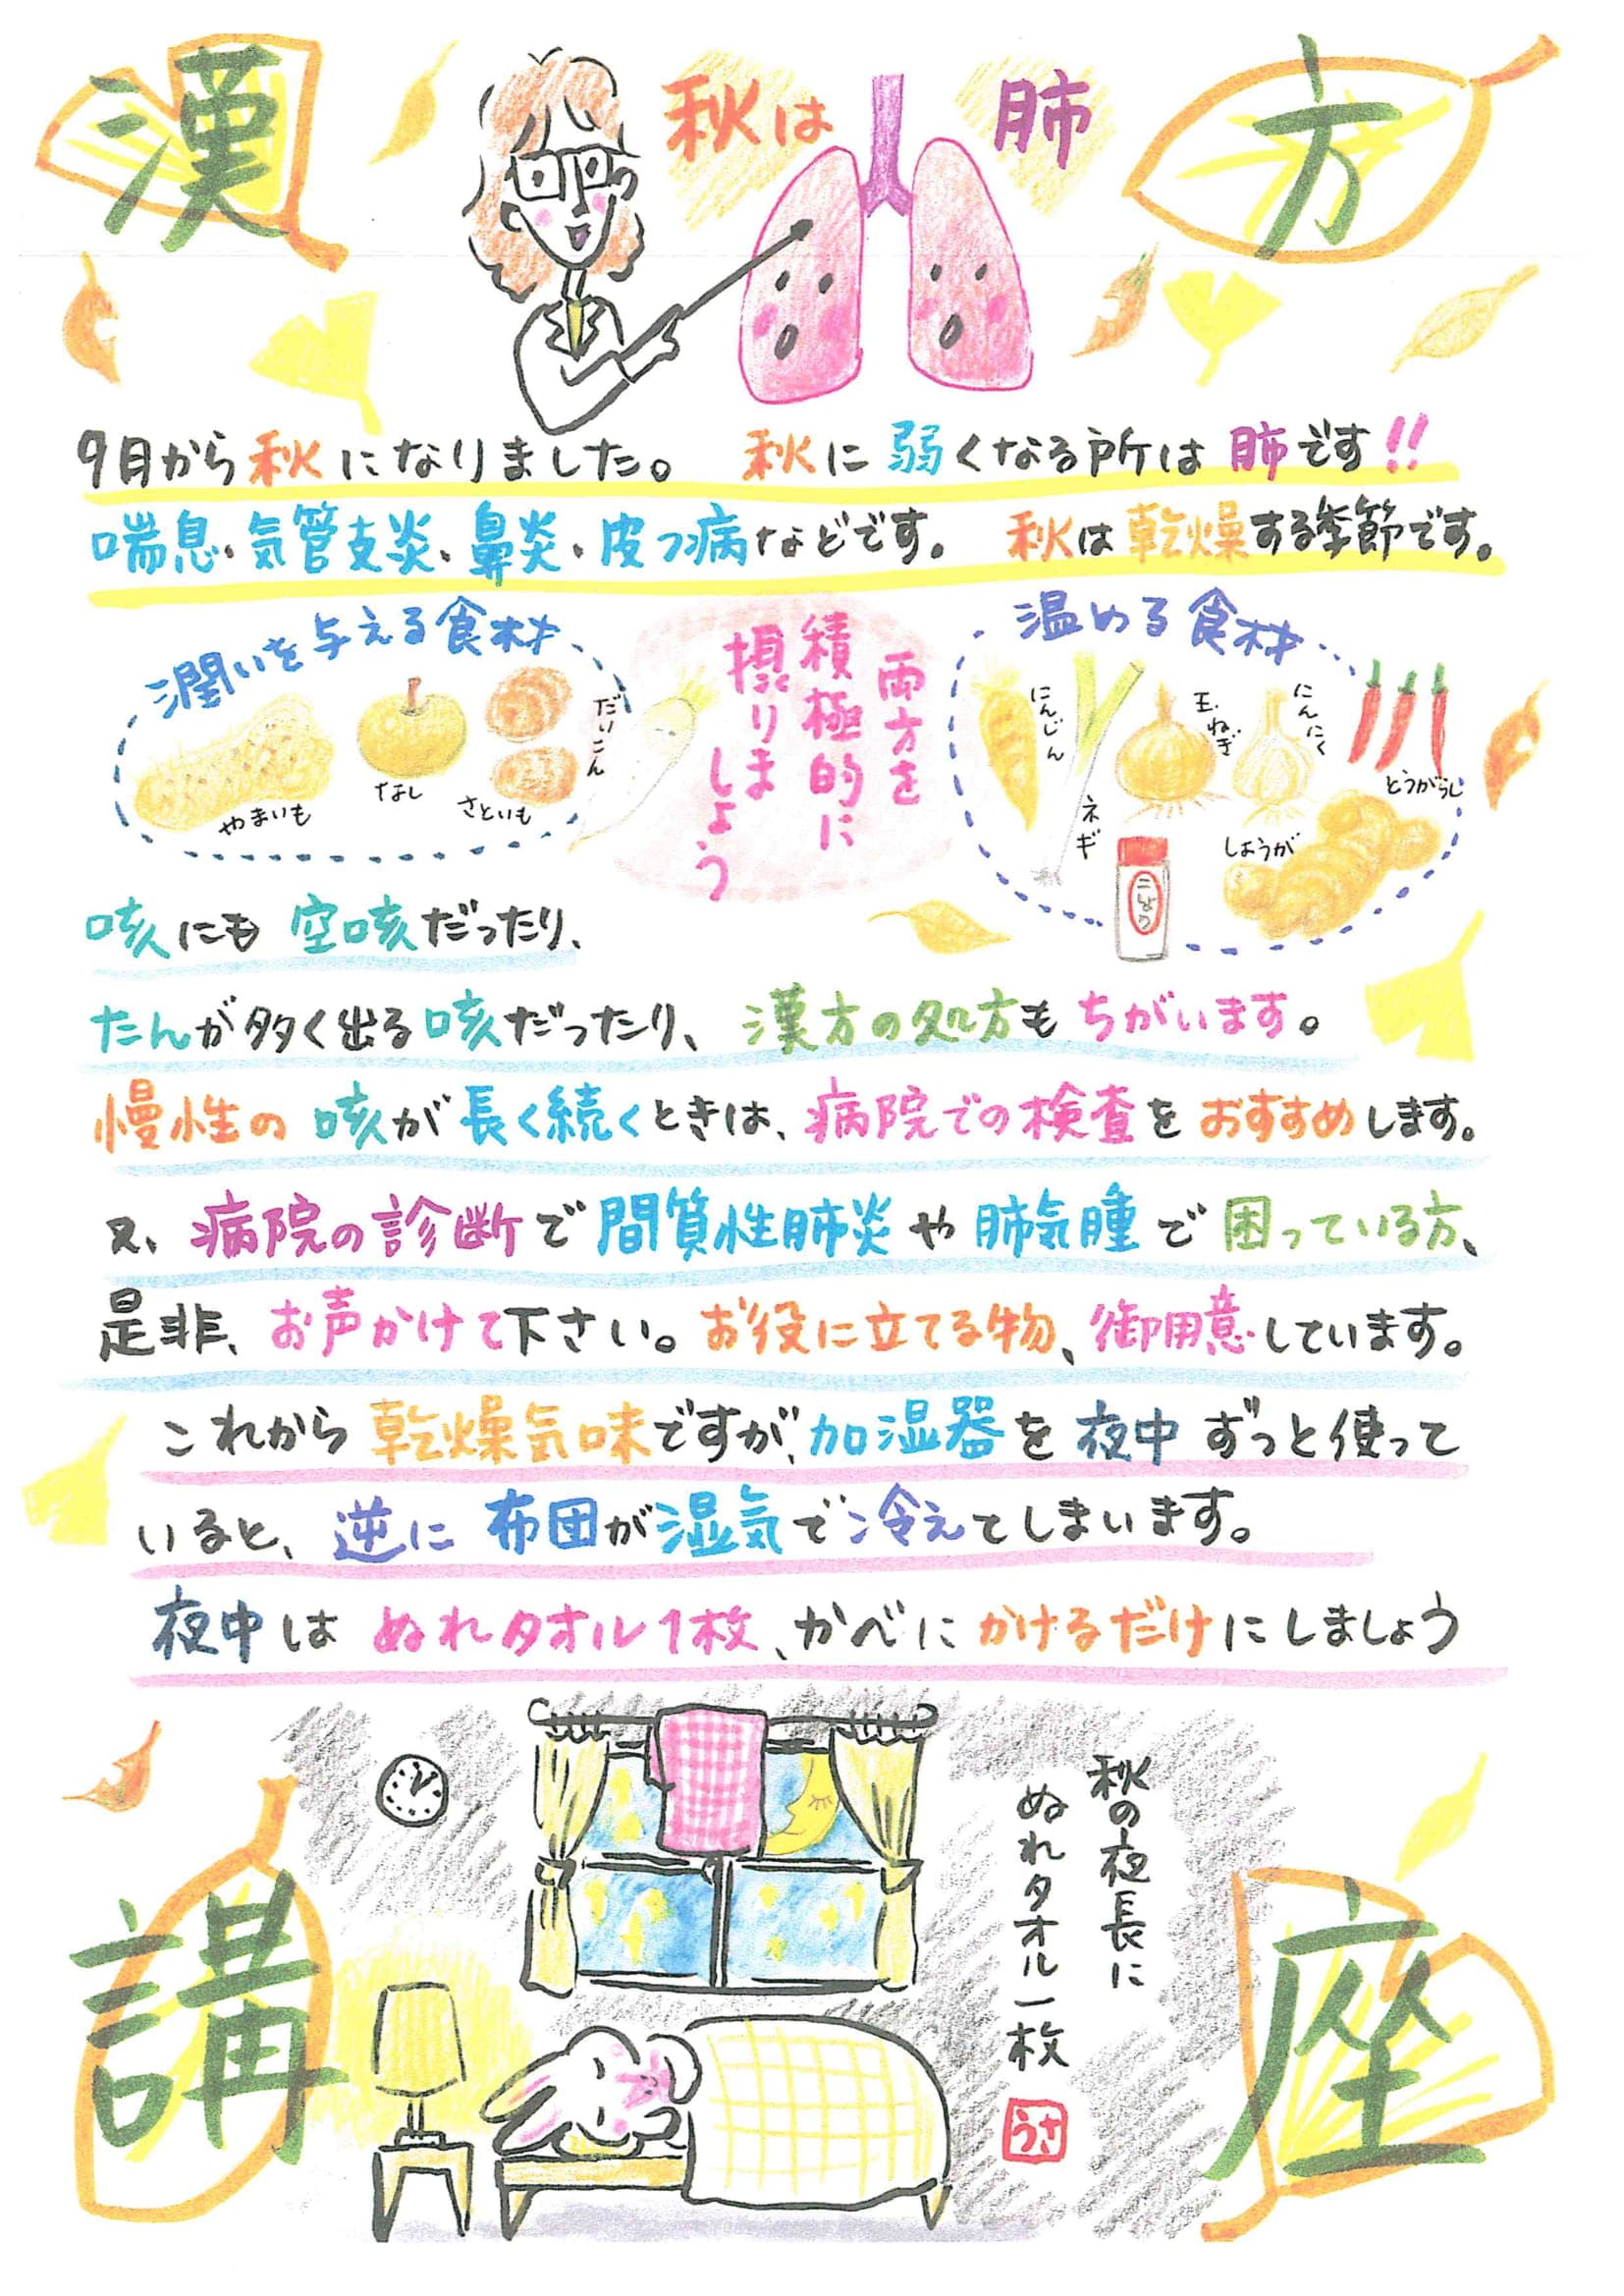 漢方
秋は 肺
9月から秋になりました。 秋に弱くなる所は肺です!!
喘息・気管支炎、鼻炎・皮フ病などです。 秋は乾燥する季節です。
潤いを与える食材
やまいも
なし
さといも
だいこん
両方を
積極的に
摂りま
しょう
温める食材
にんじん
ネギ
玉ねぎ
にんにく
とうがらし
しょうが
こしょう
咳にも 空咳だったり、
たんが多く出る咳だったり、 漢方の処方も ちがいます。
慢性の 咳が長く続くときは、病院での検査を おすすめします。
又、病院の診断で 間質性肺炎や 肺気腫で 困っている方、
是非、お声かけて下さい。お役に立てる物、御用意しています。
これから 乾燥気味ですが、加湿器を 夜中 ずっと使って
いると、逆に 布団が湿気で冷えてしまいます。
夜中は ぬれタオル1枚、かべに かけるだけにしましょう
秋の夜長に
ぬれタオル一枚
うさ
講座